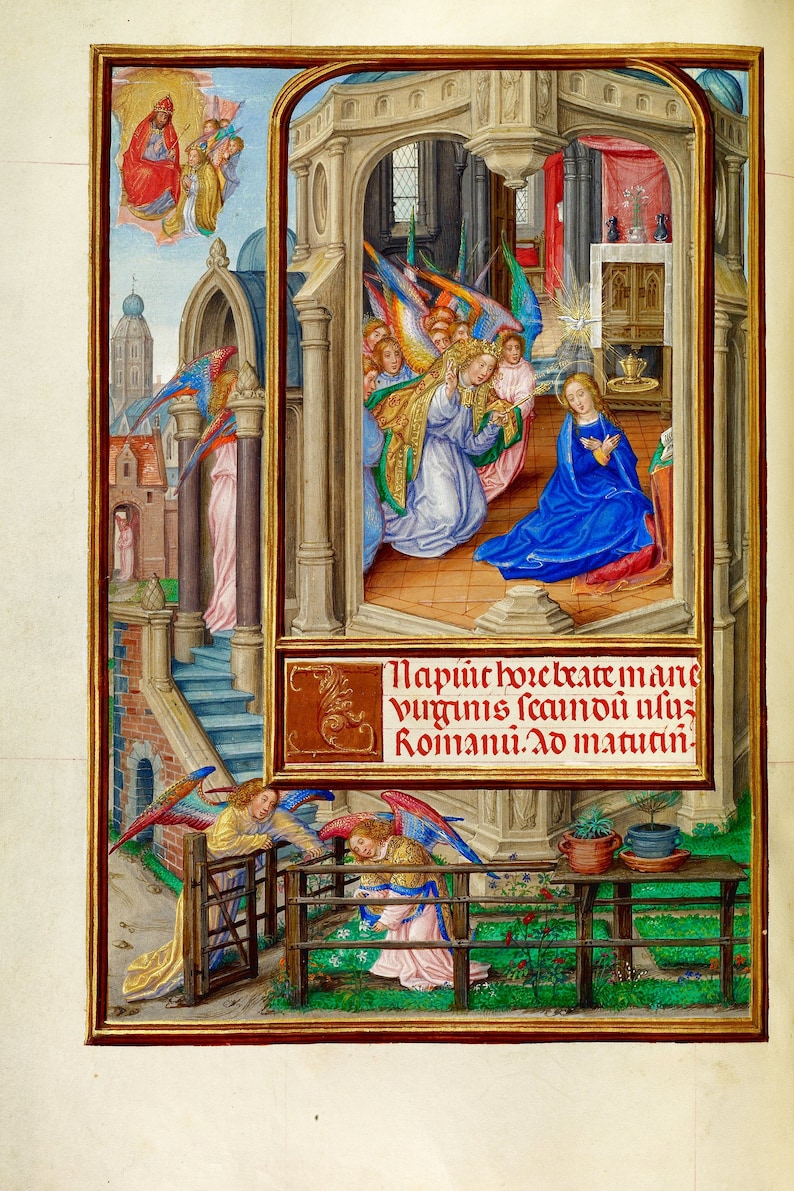 INcipiūt hore beate marie
virginis secundū usuz
Romanū. Ad matutin̄.